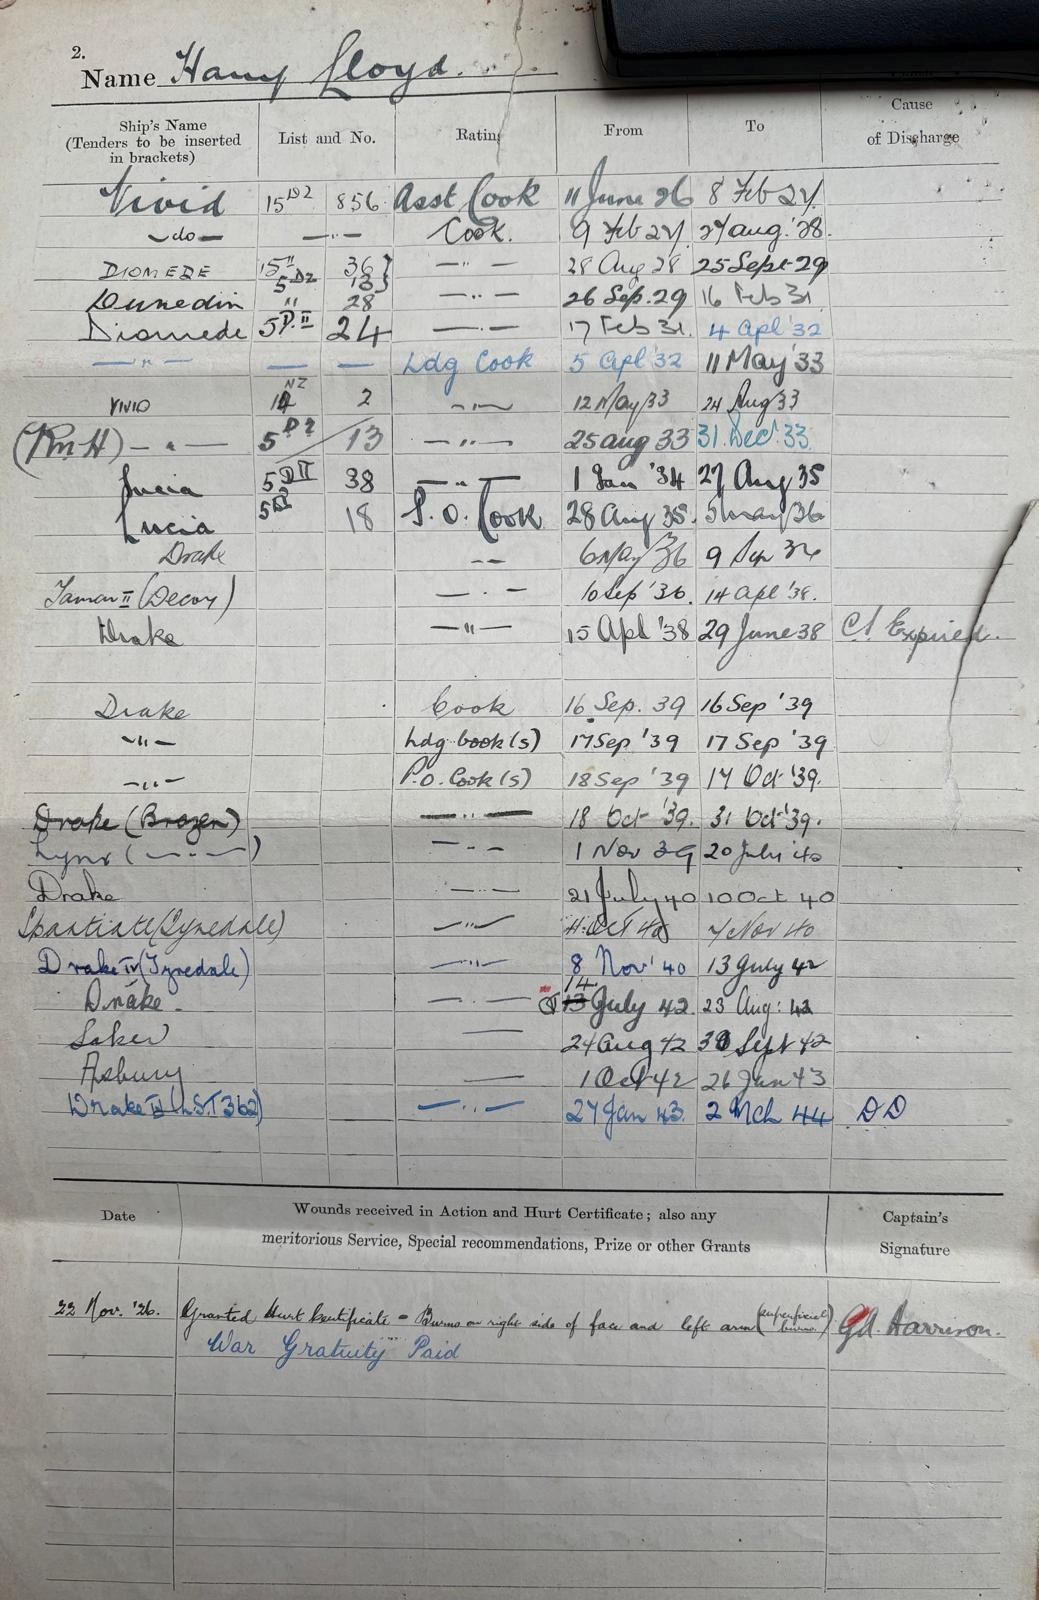 2.
Name Harry Lloyd.
Ship's Name (Tenders to be inserted in brackets) List and No. Rating From To Cause of Discharge
Vivid 15 D2 856 Asst Cook 11 June 26 8 Feb 27.
—do— —"— Cook. 9 Feb 27. 27 Aug. '28.
DIOMEDE 15" 5 D2 36 } 13 } —"— 28 Aug 28 25 Sept 29
Dunedin " 28 —"— 26 Sep. 29 16 Feb 31
Diomede 5 D.II 24 —"— 17 Feb 31. 4 Apl '32
—"— — — Ldg Cook 5 Apl '32 11 May '33
VIVID NZ 2 —"— 12 May 33 24 Aug 33
(RNH) —"— 5 D2 13 —"— 25 Aug 33 31. Dec. 33.
Lucia 5 DII 38 —"— 1 Jan '34 27 Aug 35
Lucia 5 18 P.O. Cook 28 Aug 35. 5 May '36
Drake —— 6 May '36 9 Sep 36
Tamar II (Decoy) —"— 10 Sep '36. 14 Apl '38.
Drake —"— 15 Apl '38 29 June 38 CS Expired.
Drake Cook 16 Sep. 39 16 Sep '39
—"— Ldg Cook (s) 17 Sep '39 17 Sep '39
—"— P.O. Cook (s) 18 Sep '39 17 Oct '39.
Drake (Brazen) —"— 18 Oct '39. 31 Oct '39.
Lynx (—"—) —"— 1 Nov 39 20 July '40
Drake —"— 21 July 40 10 Oct 40
Spartiate (Tynedale) —"— 11. Oct 40 7 Nov 40
Drake IV (Tynedale) —"— 8 Nov '40 13 July 42
Drake. —"— 13 14 July 42. 23 Aug: 42
Saker — 24 Aug 42 30 Sept 42
Asbury — 1 Oct 42 26 Jan 43
Drake IV (L.S.T 362) —"— 27 Jan 43. 2 Mch 44 DD
Date Wounds received in Action and Hurt Certificate; also any meritorious Service, Special recommendations, Prize or other Grants Captain's Signature
22 Nov. '26. Granted Hurt Certificate = Burns on right side of face and left arm (superficial burns.) Harrison.
War Gratuity Paid